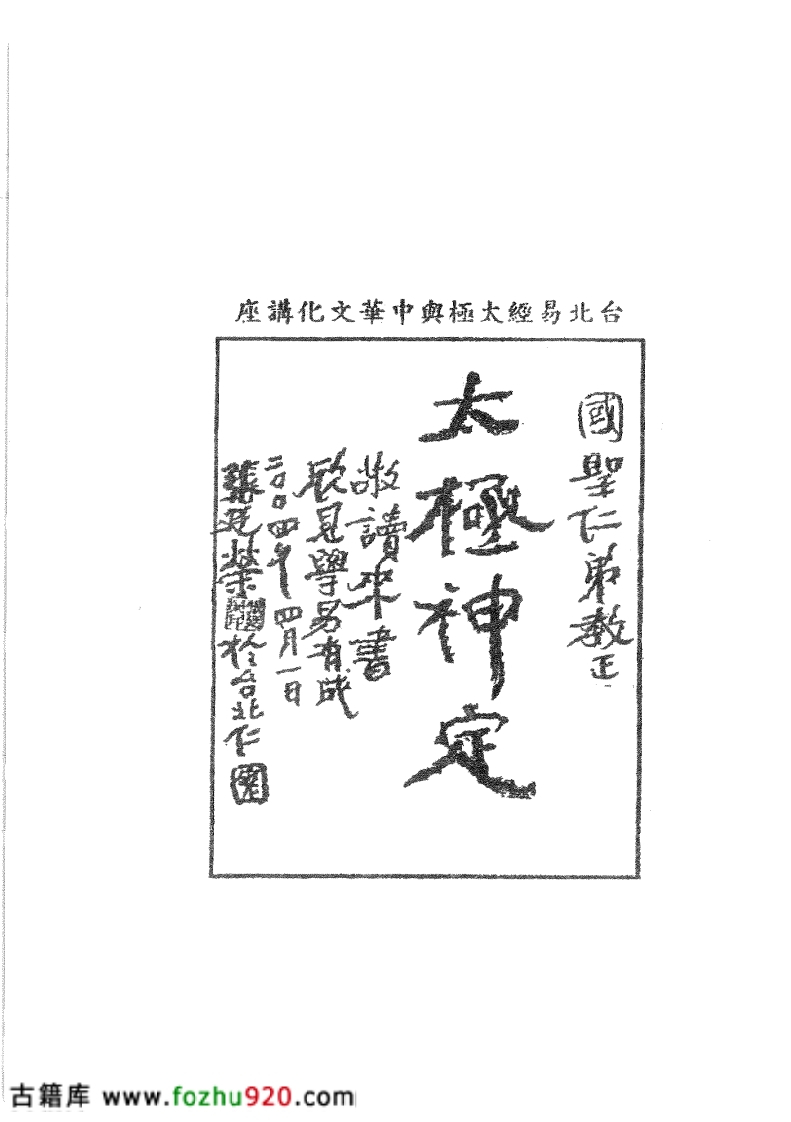 台北易經太極與中華文化講座
國聖仁弟教正
太極神定
敬讀來書
欣見學易有成
二〇〇四年四月一日
張廷榮 於台北仁園
古籍库 www.fozhu920.com